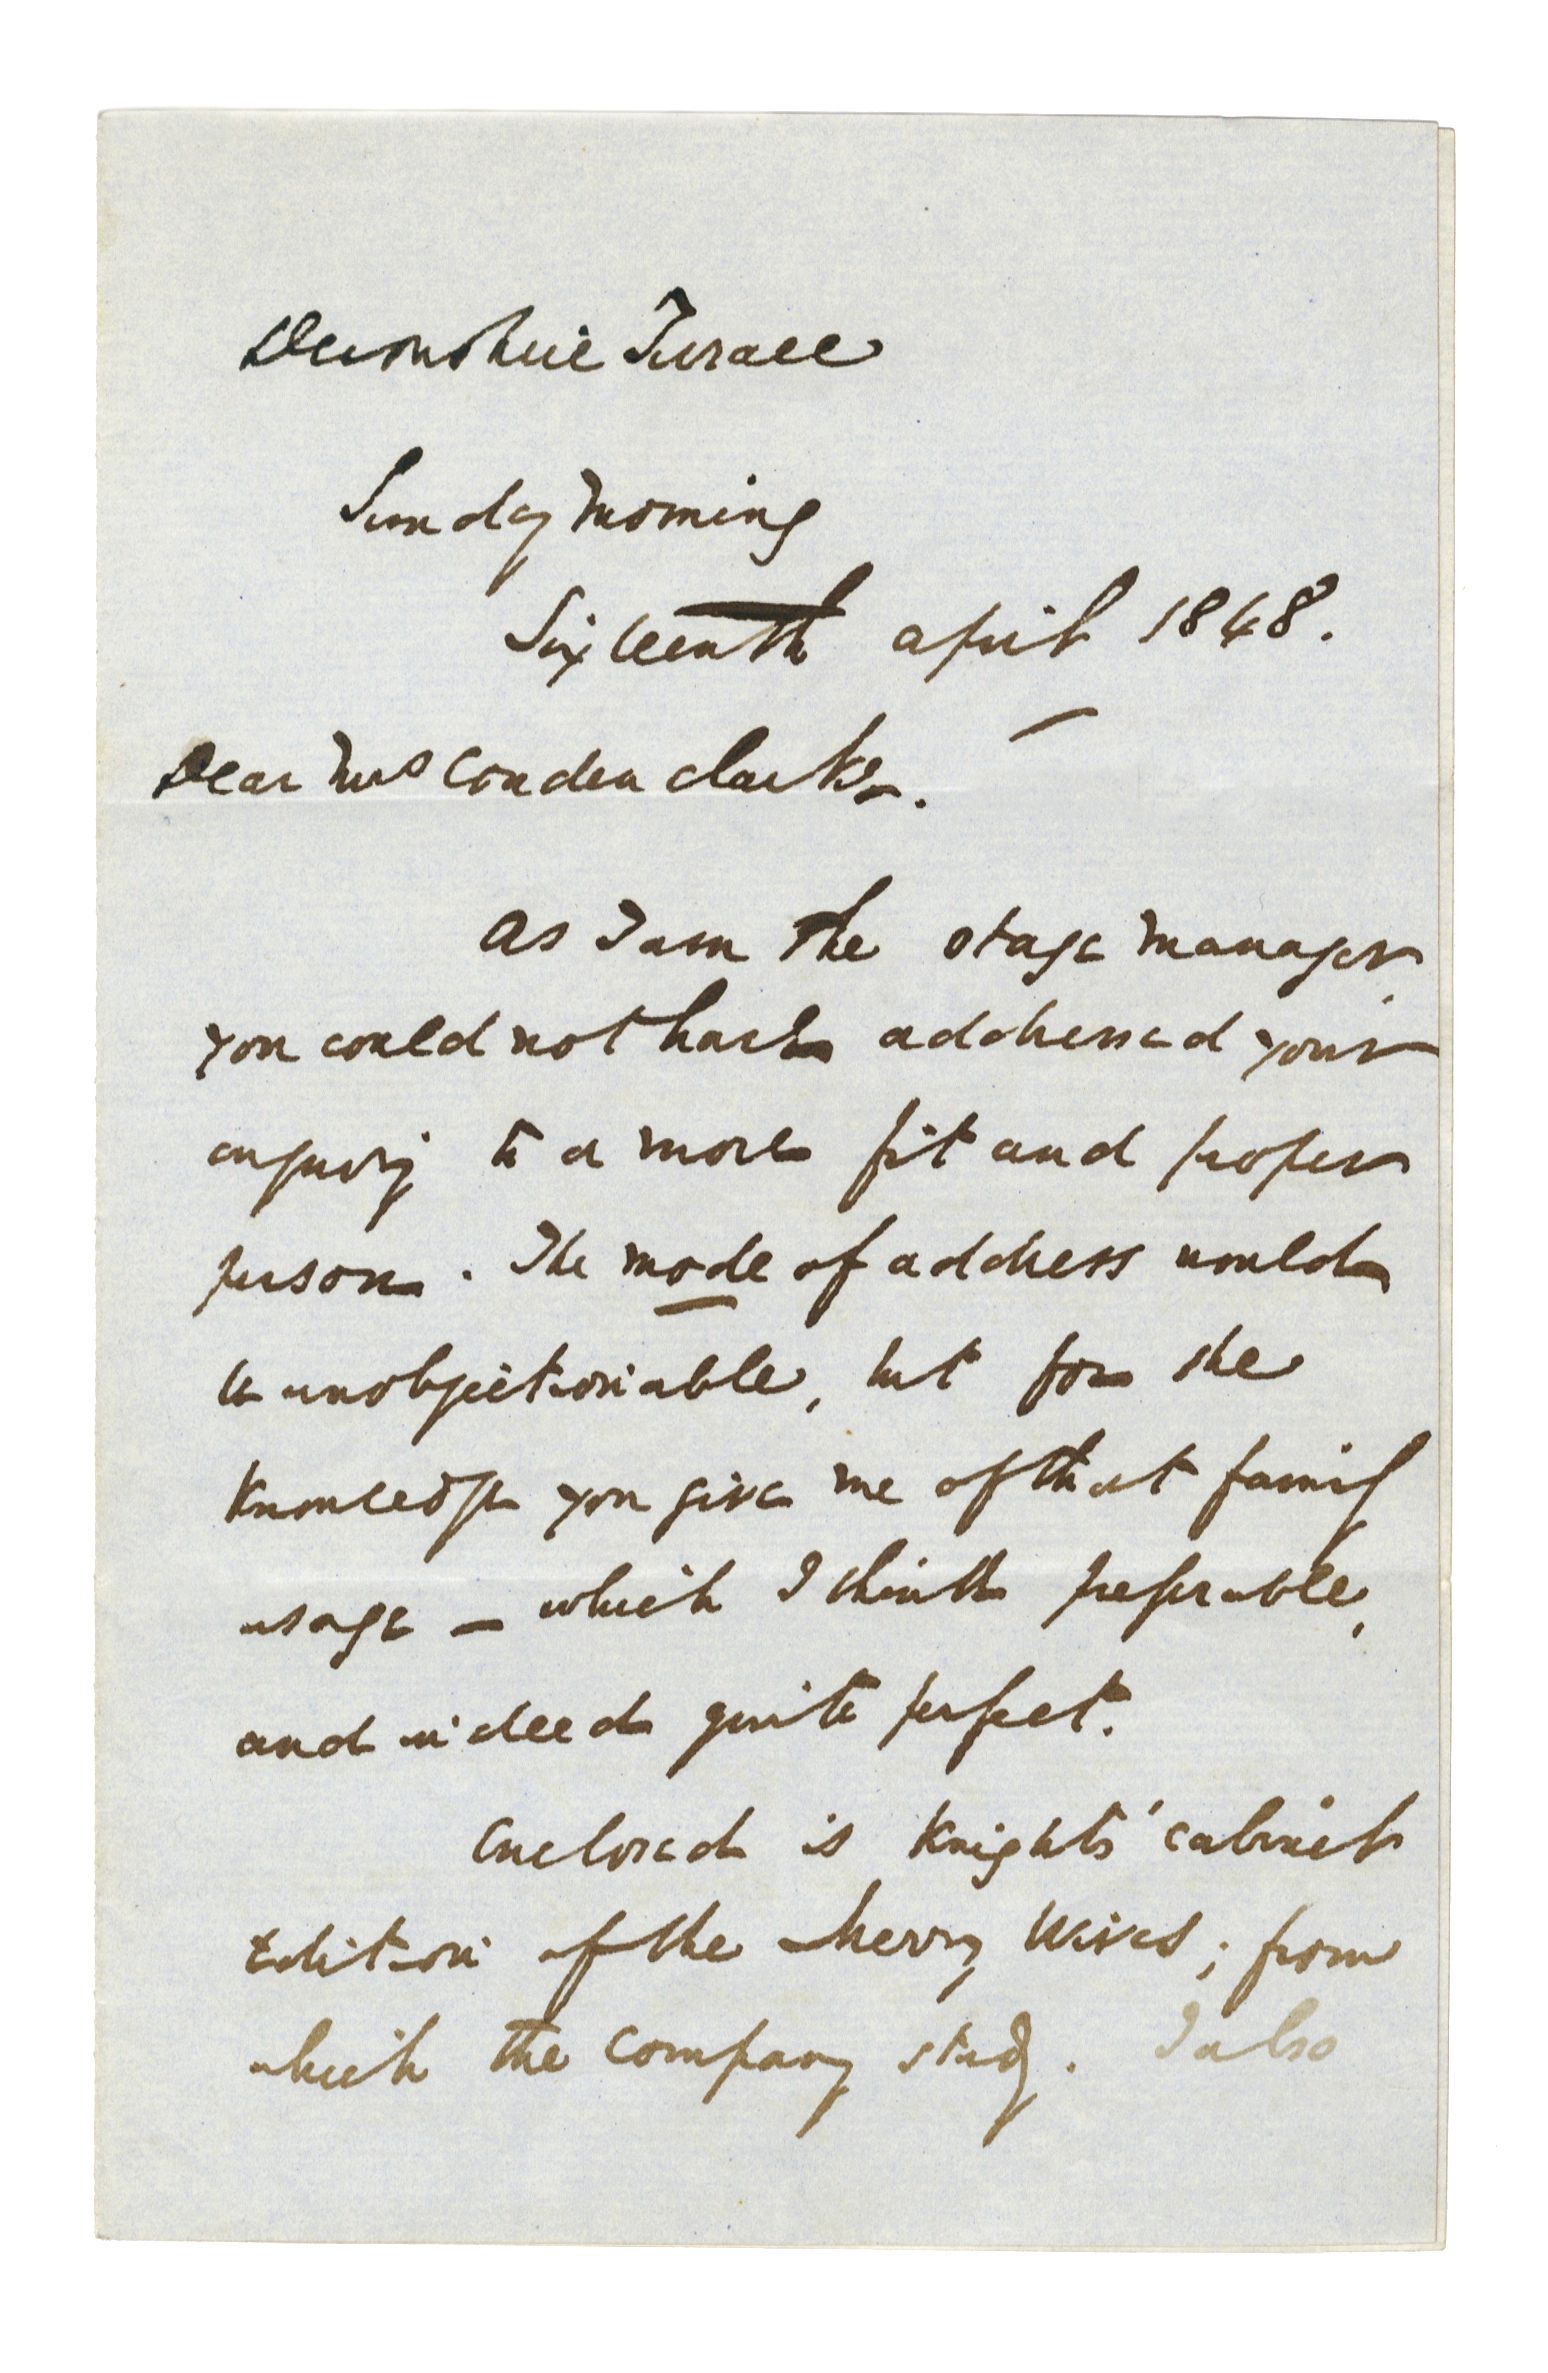 Devonshire Terrace
Sunday Morning
Sixteenth April 1848.
Dear Mrs Cowden Clarke.
As I am the stage manager,
you could not have addressed your
enquiry to a more fit and proper
person. The mode of address would
be unobjectionable, but for the
knowledge you give me of that family
usage – which I think preferable,
and indeed quite perfect.
Enclosed is Knights' cabinet
Edition of the Merry Wives; from
which the company study. I also